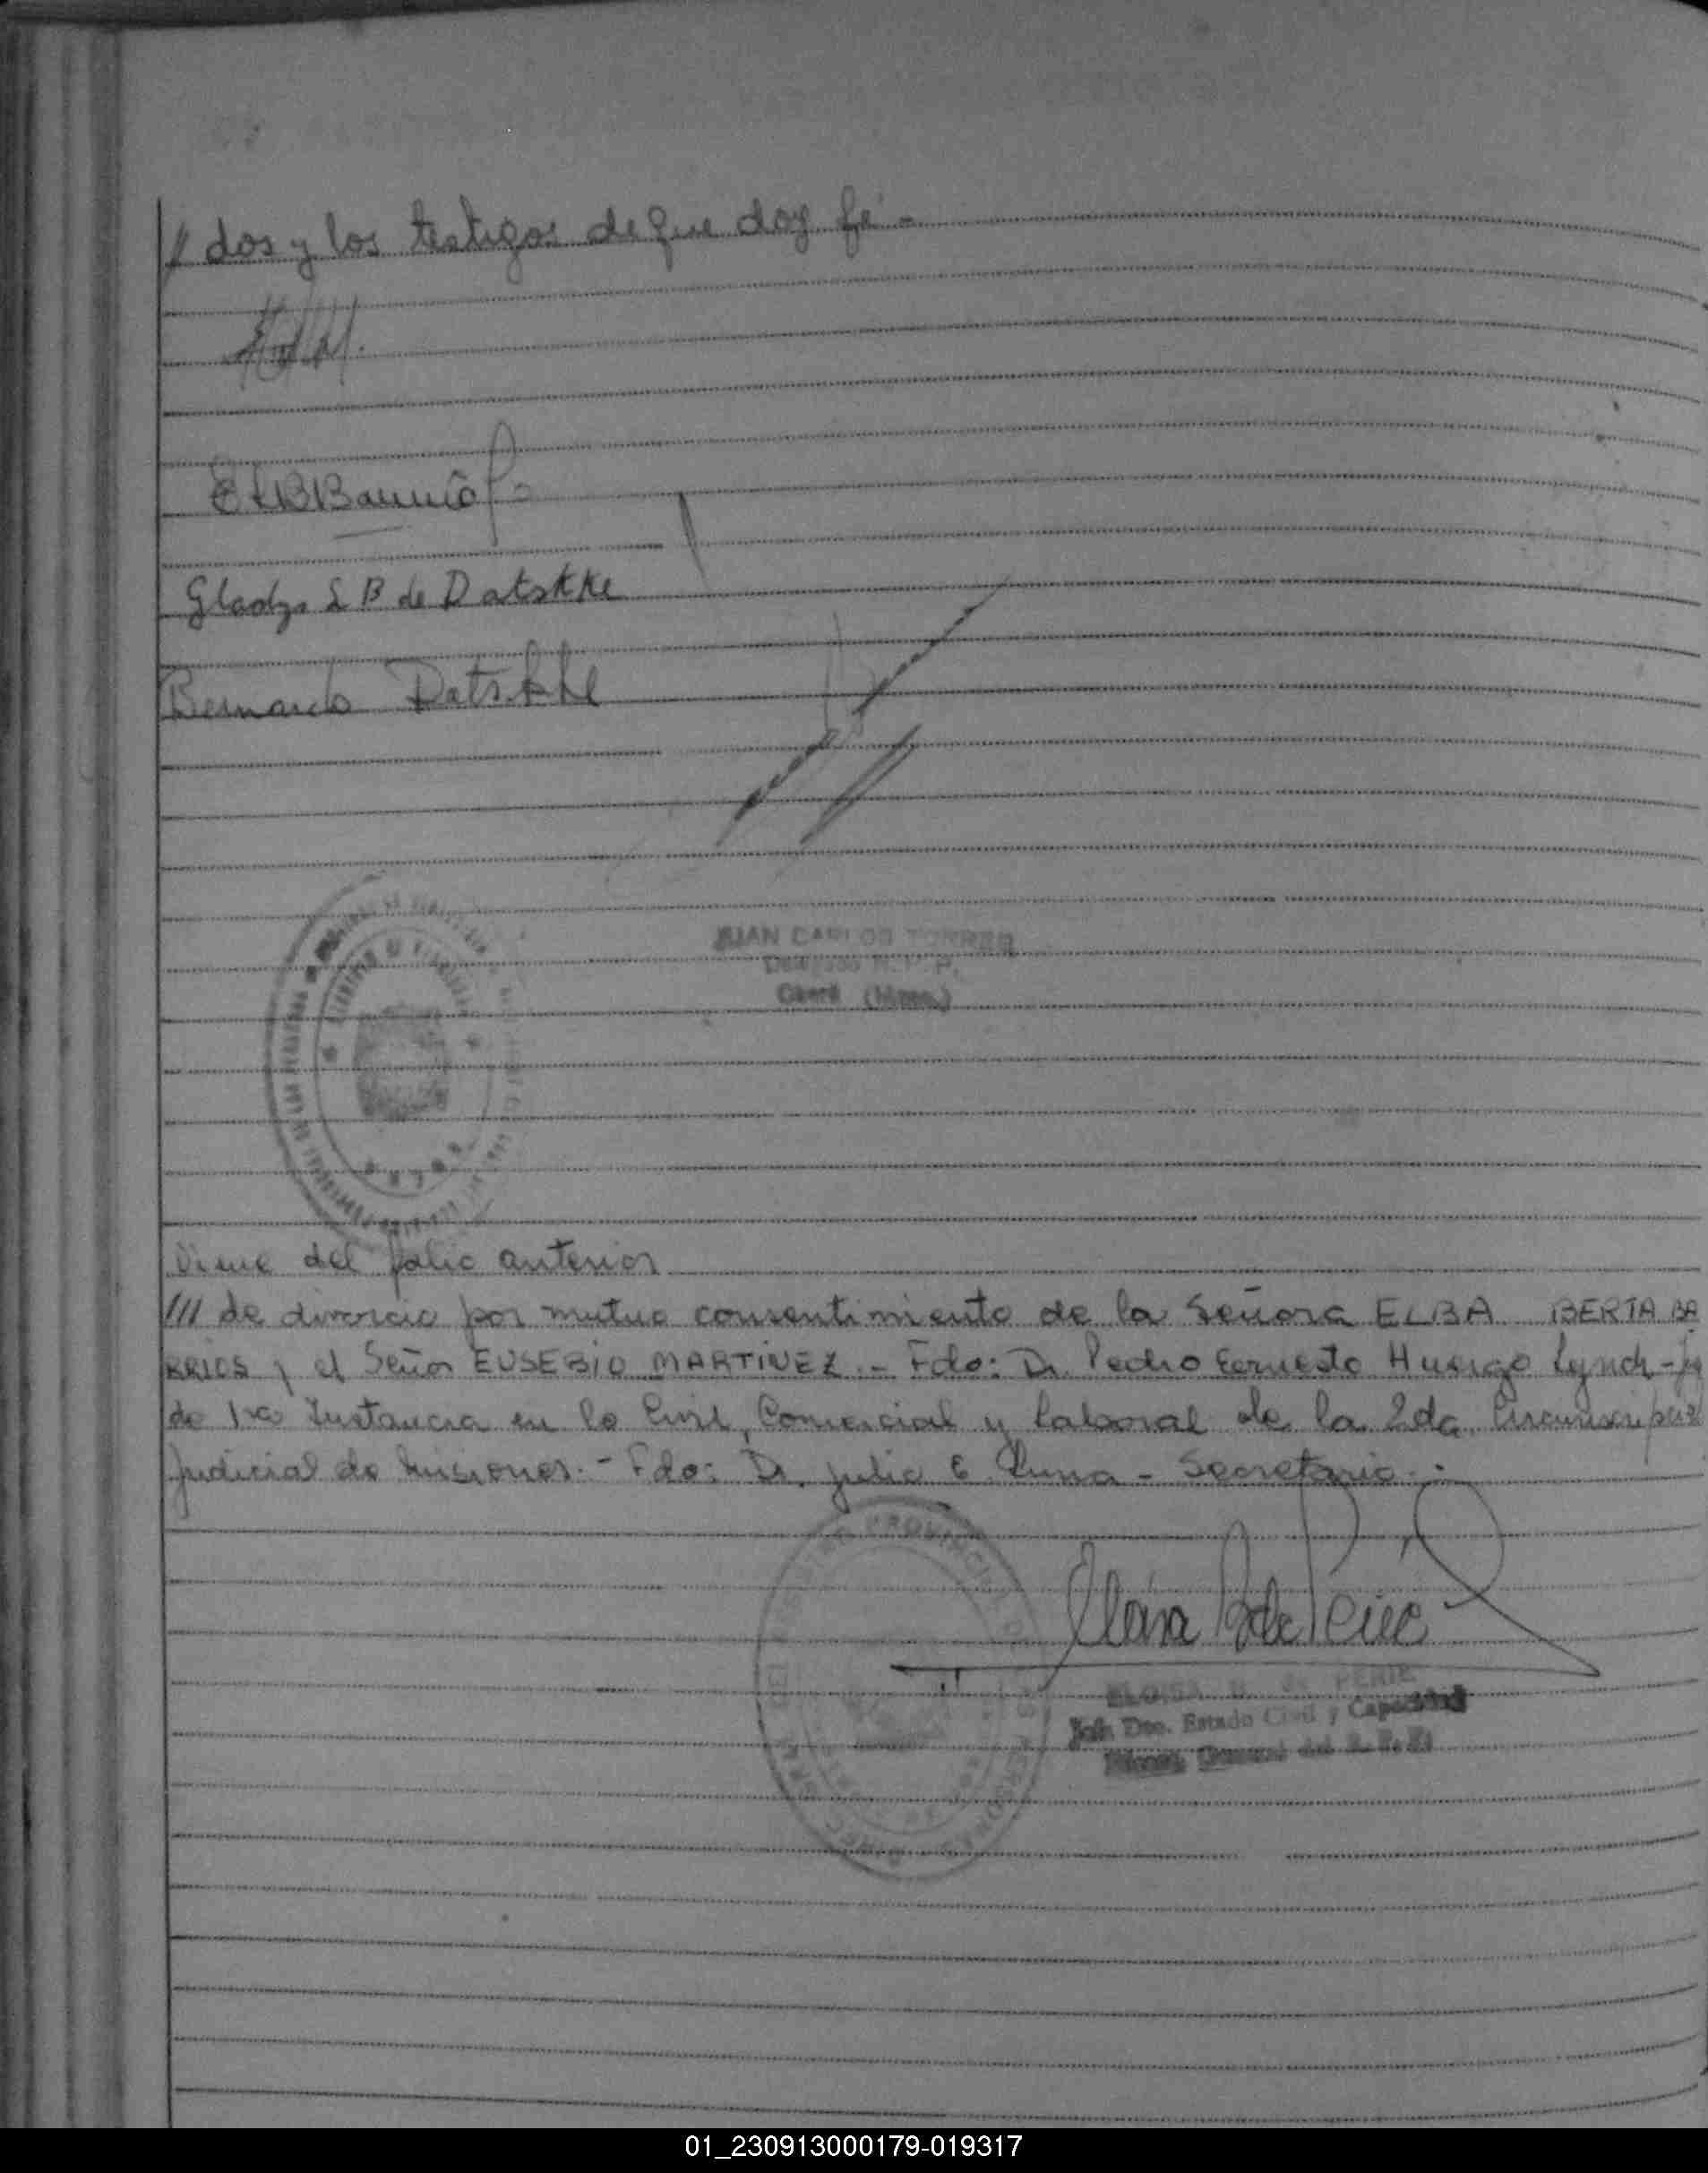 // dos y los testigos de que doy fe.-
EBBarrios
Gladys L B de Datskke
Bernardo Datskke
JUAN CARLOS TORRES
Delegado R. P. P.
Oberá (Mnes.)
Viene del folio anterior
/// de divorcio por mutuo consentimiento de la Señora ELBA BERTA BA
RRIOS y el Señor EUSEBIO MARTINEZ.- Fdo: Dr. Pedro Ernesto Huergo Lynch-
de 1ra Instancia en lo Civil, Comercial y Laboral de la 2da. Circunscripción
Judicial de Misiones.- Fdo: Dr. Julio E Luna - Secretario.-
PROVINCIA
ELOISA B. de PERIE
Jefe Dto. Estado Civil y Capacidad
General del R. P. P.
01_230913000179-019317